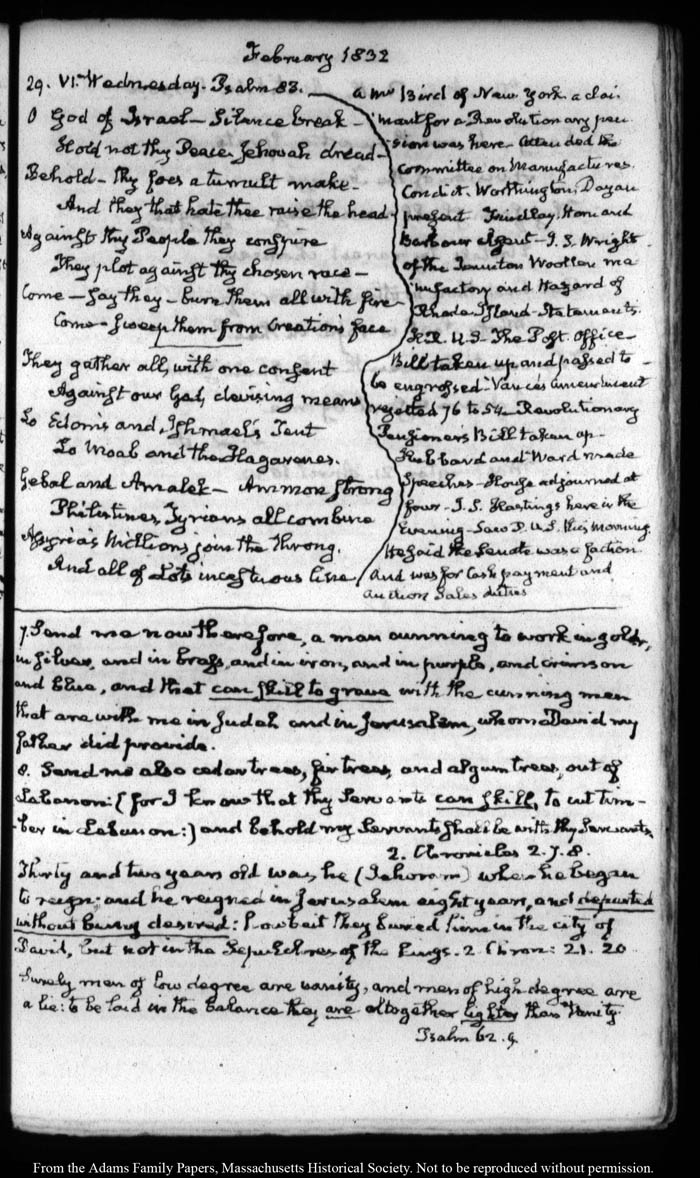 February 1832
29. VI. Wednesday. Psalm 83.
O God of Israel - Silence break -
Hold not thy Peace Jehovah dread -
Behold - thy foes a tumult make -
And they that hate thee raise the head
Against thy People they conspire
They plot against thy chosen race -
Come - say they - burn them all with fire -
Come - sweep them from Creation's face
They gather all, with one consent
Against our God, devising means
Lo Edom's and Ishmael's Tent
Lo Moab and the Hagarenes.
Gebal and Amalek - Ammon strong
Philistines, Tyrians all combine
Assyria's Millions join the throng.
And all of Lot's incestuous line
a Mr Bird of New York a clai-
mant for a Revolutionary pen
sion was here - Attended the
Committee on Manufactures.
Condict, Worthington, Dayan
present Findlay, Horn and
Barbour absent - I. S. Wright
of the Taunton Woollen ma
nufactory and Hazard of
Rhode Island - Statements.
H.R. U.S. The Post Office -
Bill taken up and passed to
be engrossed - Vance's amendment
rejected 76 to 54 - Revolutionary
Pensioner's Bill taken up -
Hubbard and Ward made
Speeches - House adjourned at
four - I. S. Hastings here in the
Evening - Saw P. U.S. this morning.
He said the Senate was a faction
And was for Cash payment and
auction Sales duties
7. Send me now therefore, a man cunning to work in gold,
in silver, and in brass, and in iron, and in purple, and crimson
and blue, and that can skill to grave with the cunning men
that are with me in Judah and in Jerusalem, whom David my
father did provide.
8. Send me also cedar trees, fir trees, and algum trees, out of
Lebanon: (for I know that thy Servants can skill, to cut tim-
-ber in Lebanon:) and behold my Servants shall be with thy Servants,
2. Chronicles 2. 7. 8.
Thirty and two years old was he (Jehoram) when he began
to reign: and he reigned in Jerusalem eight years, and departed
without being desired: howbeit they buried him in the city of
David, but not in the Sepulchres of the kings. 2 Chron: 21. 20
Surely men of low degree are vanity, and men of high degree are
a lie: to be laid in the balance they are altogether lighter than Vanity.
Psalm 62. 9.
From the Adams Family Papers, Massachusetts Historical Society. Not to be reproduced without permission.